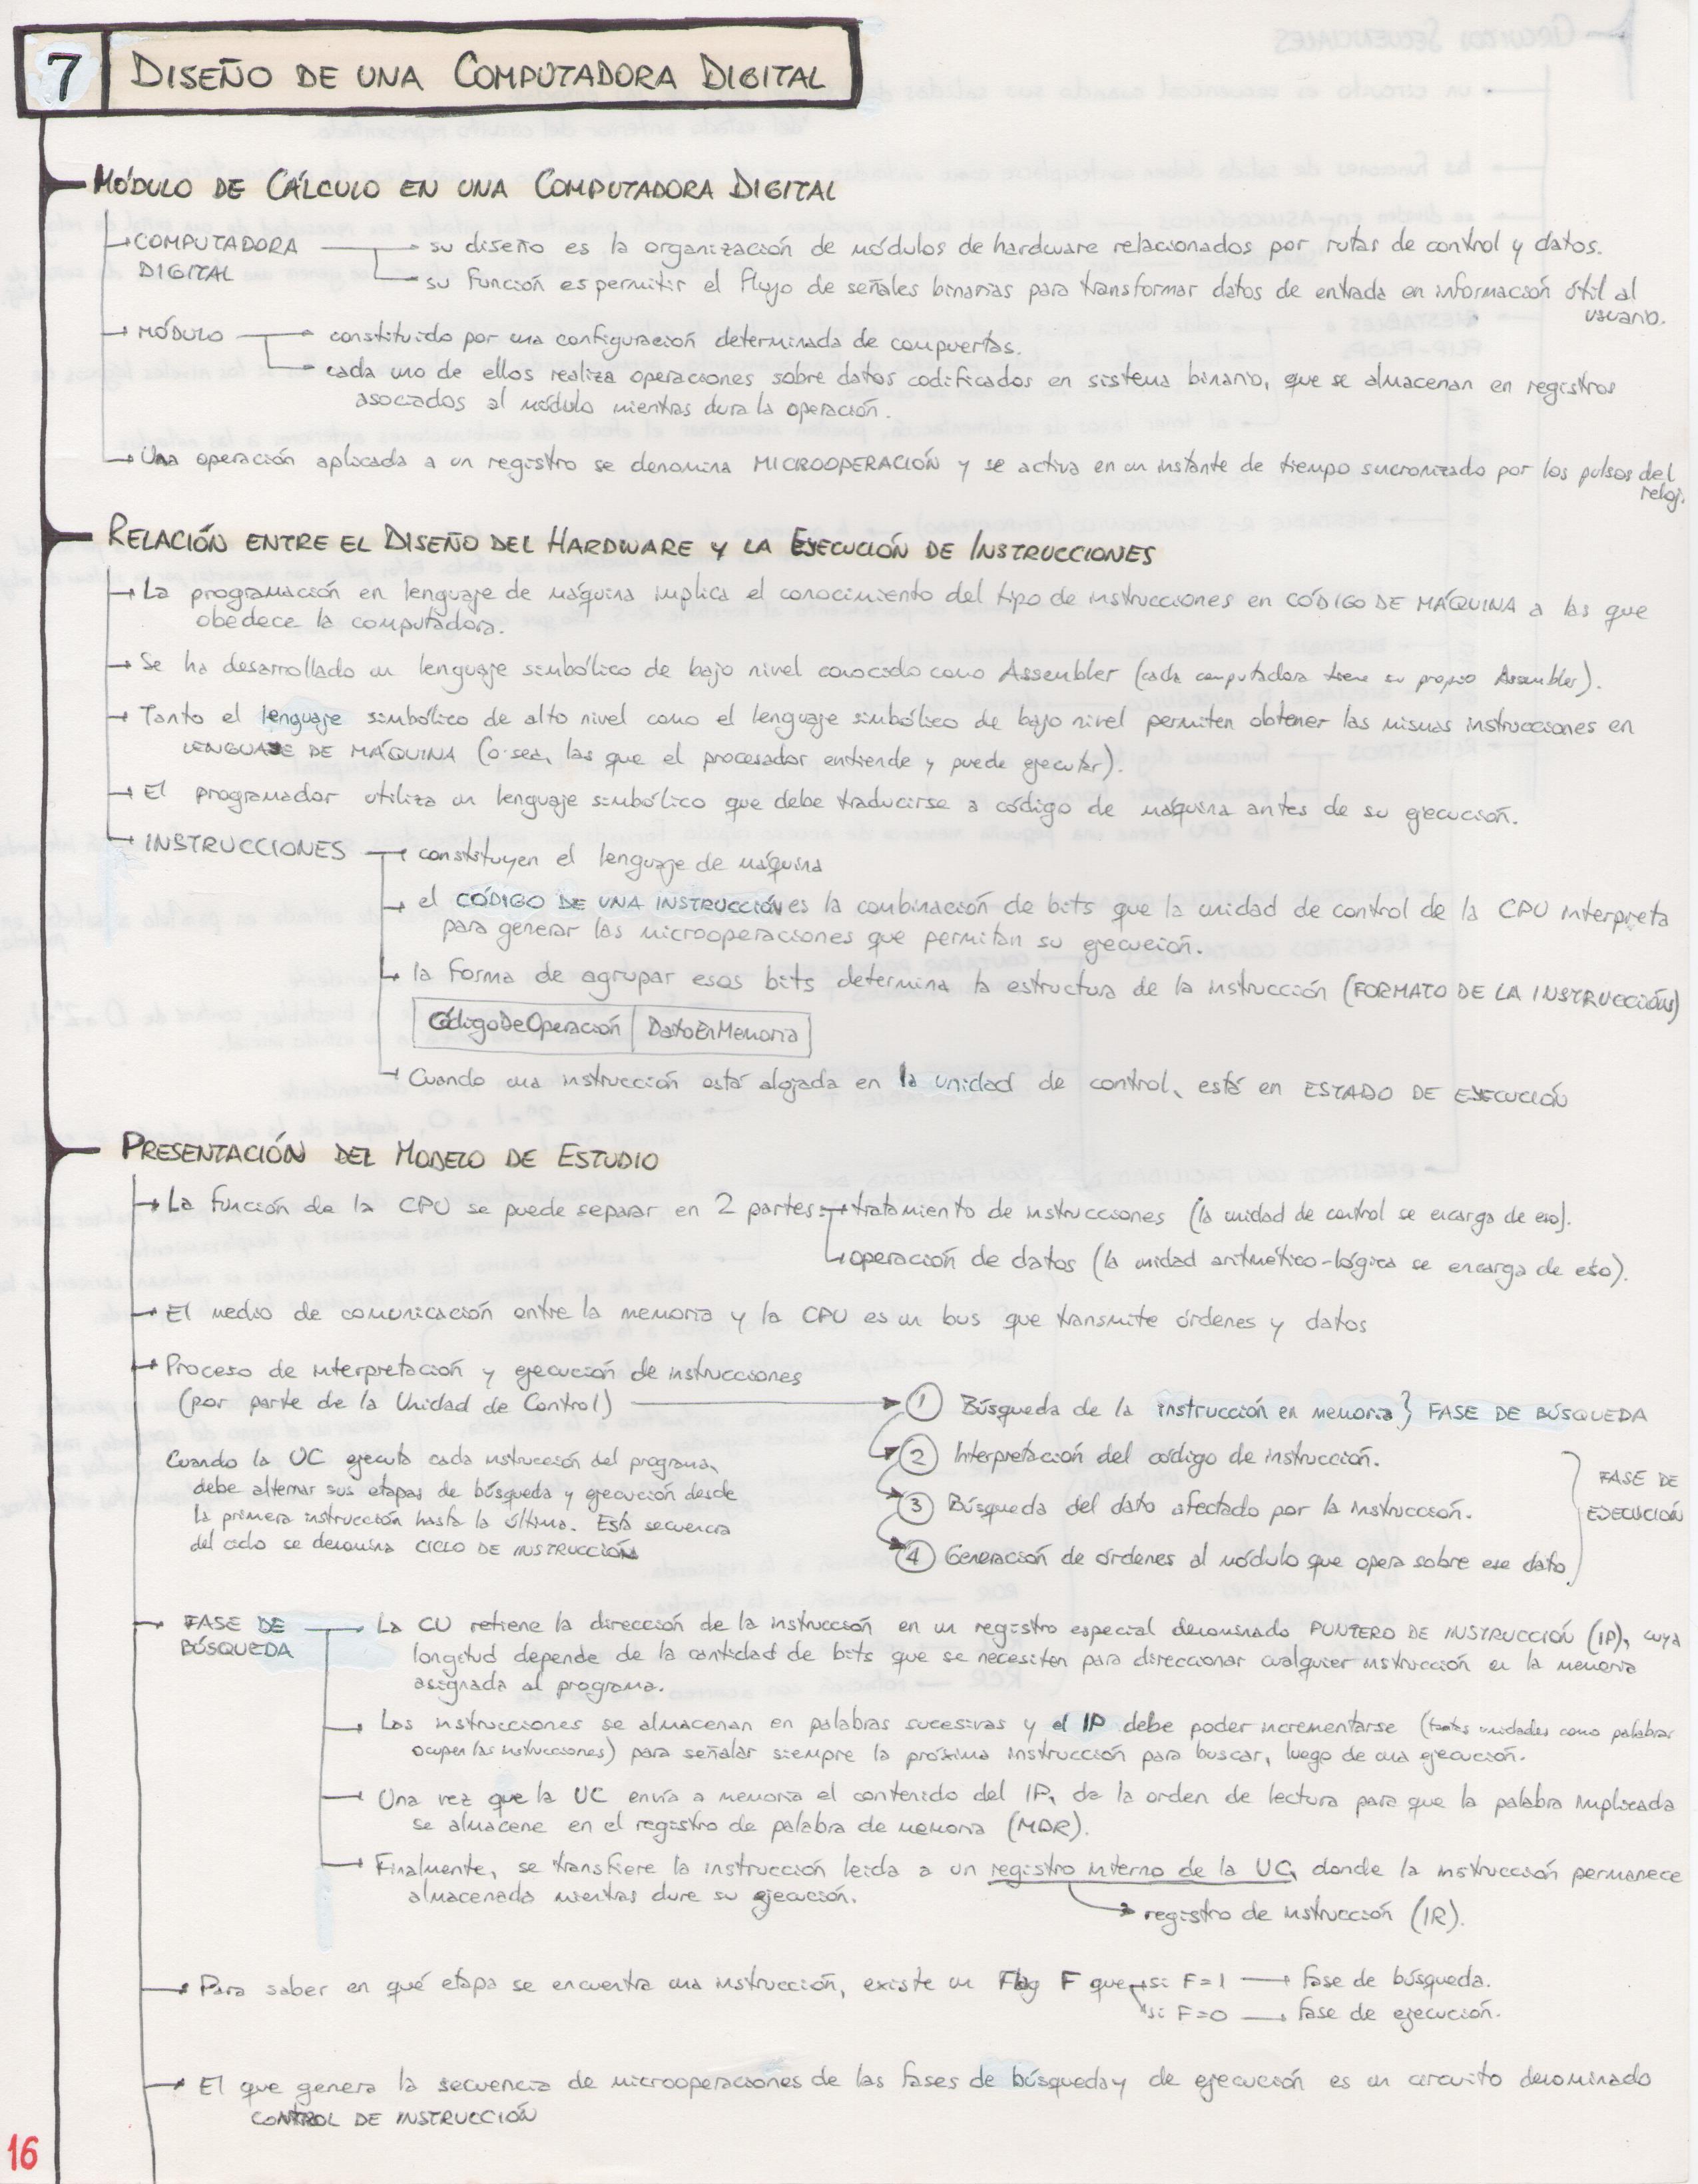 7 DISEÑO DE UNA COMPUTADORA DIGITAL
MÓDULO DE CÁLCULO EN UNA COMPUTADORA DIGITAL
COMPUTADORA DIGITAL
su diseño es la organización de módulos de hardware relacionados por rutas de control y datos.
su función es permitir el flujo de señales binarias para transformar datos de entrada en información útil al
usuario.
MÓDULO
constituido por una configuración determinada de compuertas.
cada uno de ellos realiza operaciones sobre datos codificados en sistema binario, que se almacenan en registros
asociados al módulo mientras dura la operación.
Una operación aplicada a un registro se denomina MICROOPERACIÓN y se activa en un instante de tiempo sincronizado por los pulsos del
reloj.
RELACIÓN ENTRE EL DISEÑO DEL HARDWARE Y LA EJECUCIÓN DE INSTRUCCIONES
La programación en lenguaje de máquina implica el conocimiento del tipo de instrucciones en CÓDIGO DE MÁQUINA a las que
obedece la computadora.
Se ha desarrollado un lenguaje simbólico de bajo nivel conocido como Assembler (cada computadora tiene su propio Assembler).
Tanto el lenguaje simbólico de alto nivel como el lenguaje simbólico de bajo nivel permiten obtener las mismas instrucciones en
LENGUAJE DE MÁQUINA (o sea, las que el procesador entiende y puede ejecutar).
El programador utiliza un lenguaje simbólico que debe traducirse a código de máquina antes de su ejecución.
INSTRUCCIONES
constituyen el lenguaje de máquina
el CÓDIGO DE UNA INSTRUCCIÓN es la combinación de bits que la unidad de control de la CPU interpreta
para generar las microoperaciones que permitan su ejecución.
la forma de agrupar esos bits determina la estructura de la instrucción (FORMATO DE LA INSTRUCCIÓN)
CódigoDeOperación | DatoEnMemoria
Cuando una instrucción está alojada en la unidad de control, está en ESTADO DE EJECUCIÓN
PRESENTACIÓN DEL MODELO DE ESTUDIO
La función de la CPU se puede separar en 2 partes: tratamiento de instrucciones (la unidad de control se encarga de eso).
operación de datos (la unidad aritmético-lógica se encarga de eso).
El medio de comunicación entre la memoria y la CPU es un bus que transmite órdenes y datos
Proceso de interpretación y ejecución de instrucciones
(por parte de la Unidad de Control)
1 Búsqueda de la instrucción en memoria} FASE DE BÚSQUEDA
2 Interpretación del código de instrucción.
3 Búsqueda del dato afectado por la instrucción.
4 Generación de órdenes al módulo que opera sobre ese dato.
FASE DE
EJECUCIÓN
Cuando la UC ejecuta cada instrucción del programa,
debe alternar sus etapas de búsqueda y ejecución desde
la primera instrucción hasta la última. Esta secuencia
del ciclo se denomina CICLO DE INSTRUCCIÓN
FASE DE
BÚSQUEDA
La CU retiene la dirección de la instrucción en un registro especial denominado PUNTERO DE INSTRUCCIÓN (IP), cuya
longitud depende de la cantidad de bits que se necesiten para direccionar cualquier instrucción en la memoria
asignada al programa.
Las instrucciones se almacenan en palabras sucesivas y el IP debe poder incrementarse (tantas unidades como palabras
ocupen las instrucciones) para señalar siempre la próxima instrucción para buscar, luego de una ejecución.
Una vez que la UC envía a memoria el contenido del IP, da la orden de lectura para que la palabra implicada
se almacene en el registro de palabra de memoria (MDR).
Finalmente, se transfiere la instrucción leida a un registro interno de la UC, donde la instrucción permanece
almacenada mientras dure su ejecución.
registro de instrucción (IR).
Para saber en qué etapa se encuentra una instrucción, existe un Flag F que si F=1 → fase de búsqueda.
si F=0 → fase de ejecución.
El que genera la secuencia de microoperaciones de las fases de búsqueda y de ejecución es un circuito denominado
CONTROL DE INSTRUCCIÓN
16